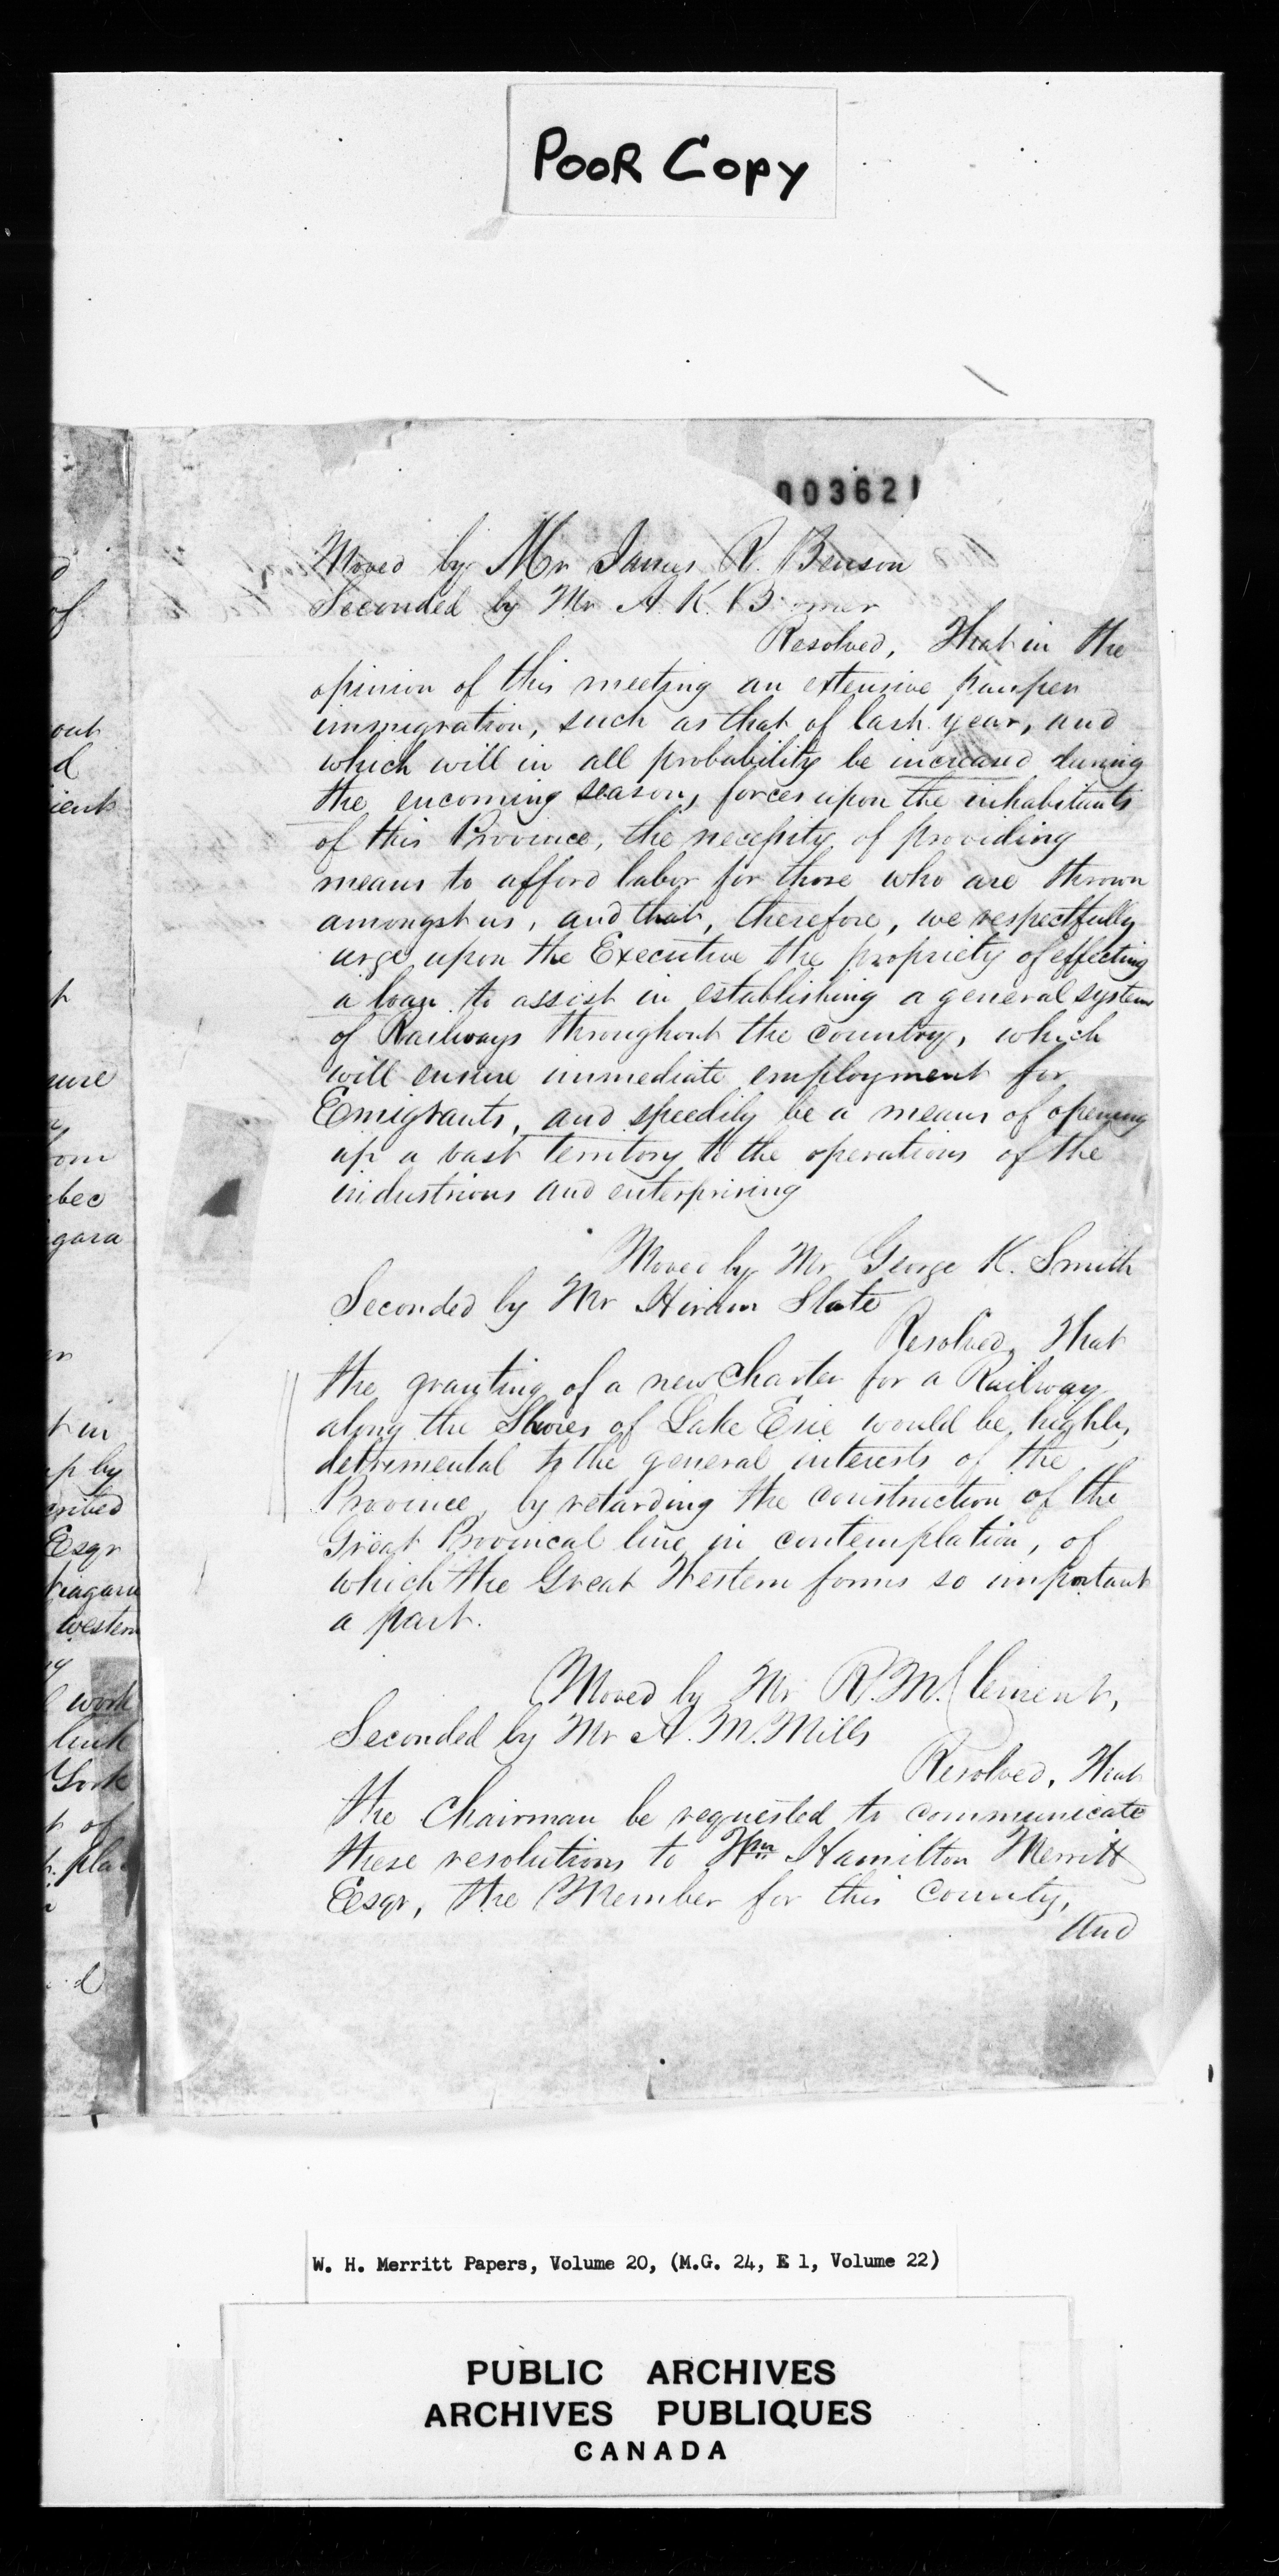 POOR COPY
003621
Moved by Mr James R. Benson
Seconded by Mr A. K.
Resolved, That in the
opinion of this meeting an extensive pauper
immigration, such as that of last year, and
which will in all probability be increased during
the encoming season, forces upon the inhabitants
of this Province, the necessity of providing
means to afford labor for those who are thrown
amongst us, and that, therefore, we respectfully
urge upon the Executive the propriety of effecting
a loan to assist in establishing a general system
of Railways throughout the country, which
will ensure immediate employment for
Emigrants, and speedily be a means of opening
up a vast territory to the operations of the
industrious and enterprising
Moved by Mr George K. Smith
Seconded by Mr Hiram Slate
Resolved, That
the granting of a new Charter for a Railway
along the Shores of Lake Erie would be highly
detrimental to the general interests of the
Province, by retarding the construction of the
Great Provincal line in contemplation, of
which the Great Western forms so important
a part.
Moved by Mr R. M. Clement,
Seconded by Mr A. M. Mills
Resolved, That
the Chairman be requested to communicate
these resolutions to Wm Hamilton Merritt
Esqr, the Member for this County,
And
out
d
ient
of
bec
gara
t in
p by
cribed
Esqr
iagara
western
work
link
York
t of
d
W. H. Merritt Papers, Volume 20, (M.G. 24, E 1, Volume 22)
PUBLIC ARCHIVES
ARCHIVES PUBLIQUES
CANADA